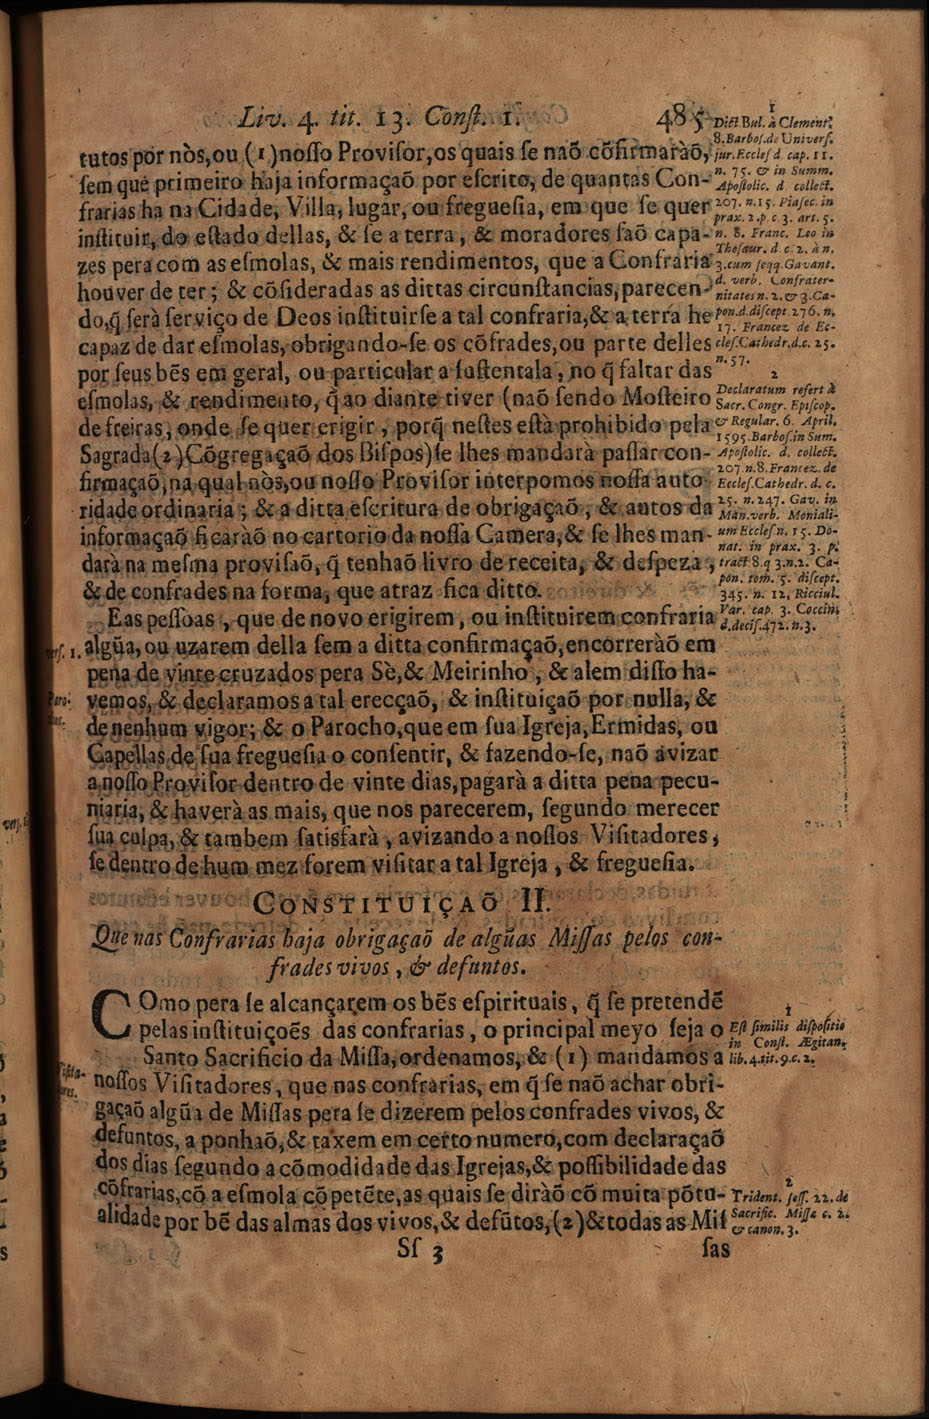 Liv. 4. tit. 13. Conſt. 1. 485
tutos por nòs, ou (1) noſſo Proviſor, os quais ſe naõ cõfirmaràõ,
ſem qué primeiro haja informaçaõ por eſcrito, de quantas Con-
frarias ha na Cidade, Villa, lugar, ou fregueſia, em que ſe quer
inſtituir, do eſtado dellas, & ſe a terra, & moradores ſaõ capa-
zes pera com as eſmolas, & mais rendimentos, que a Confraria
houver de ter; & cõſideradas as dittas circunſtancias, parecen-
do, q̃ ſerà ſerviço de Deos inſtituirſe a tal confraria, & a terra he
capaz de dar eſmolas, obrigando-ſe os cõfrades, ou parte delles
por ſeus bẽs em geral, ou particular a ſuſtentala, no q̃ faltar das
eſmolas, & rendimento, q̃ ao diante tiver (naõ ſendo Moſteiro
de freiras, onde ſe quer erigir, porq̃ neſtes eſtà prohibido pela
Sagrada (2) Cõgregaçaõ dos Biſpos) ſe lhes mandarà paſſar con-
firmaçaõ, na qual nòs, ou noſſo Proviſor interpomos noſſa auto
ridade ordinaria; & a ditta eſcritura de obrigaçaõ, & autos da
informaçaõ ficaràõ no cartorio da noſſa Camera, & ſe lhes man-
darà na meſma proviſaõ, q̃ tenhaõ livro de receita, & deſpeza,
& de confrades na forma, que atraz fica ditto.
E as peſſoas, que de novo erigirem, ou inſtituirem confraria
algũa, ou uzarem della ſem a ditta confirmaçaõ, encorreràõ em
pena de vinte cruzados pera Sè, & Meirinho, & alem diſſo ha-
vemos, & declaramos a tal erecçaõ, & inſtituiçaõ por nulla, &
de nenhum vigor; & o Parocho, que em ſua Igreja, Ermidas, ou
Capellas de ſua fregueſia o conſentir, & fazendo-ſe, naõ avizar
a noſſo Proviſor dentro de vinte dias, pagarà a ditta pena pecu-
niaria, & haverà as mais, que nos parecerem, ſegundo merecer
ſua culpa, & tambem ſatisfarà, avizando a noſſos Viſitadores,
ſe dentro de hum mez forem viſitar a tal Igreja, & fregueſia.
CONSTITUIÇAÕ II.
Que nas Confrarias haja obrigaçaõ de algũas Miſſas pelos con-
frades vivos, & defuntos.
COmo pera ſe alcançarem os bẽs eſpirituais, q̃ ſe pretendẽ
pelas inſtituiçoẽs das confrarias, o principal meyo ſeja o
Santo Sacrificio da Miſſa, ordenamos, & (1) mandamos a
noſſos Viſitadores, que nas confrarias, em q̃ ſe naõ achar obri-
gaçaõ algũa de Miſſas pera ſe dizerem pelos confrades vivos, &
defuntos, a ponhaõ, & taxem em certo numero, com declaraçaõ
dos dias ſegundo a cõmodidade das Igrejas, & poſſibilidade das
cõfrarias, cõ a eſmola cõpetẽte, as quais ſe diràõ cõ muita põtu-
alidade por bẽ das almas dos vivos, & defũtos, (2) & todas as Miſ
Sſ 3 ſas
1
Dict. Bul. à Clement.
8. Barboſ. de Univerſ.
jur. Eccleſ d cap. 11.
n. 75. & in Summ.
Apoſtolic. d collect.
207. n. 15. Piaſec. in
prax. 2. p. c. 3. art. 5.
n. 8. Franc. Leo in
Theſaur. d. c. 2. à n.
3. cum ſeqq. Gavant.
d. verb. Confrater-
nitates n. 2. & 3. Ca-
pon. d. diſcept. 276. n.
17. Francez de Ec-
cleſ. Cathedr. d. c. 25.
n. 57.
2
Declaratum refert à
Sacr. Congr. Epiſcop.
& Regular. 6. April.
1595. Barboſ. in Sum.
Apoſtolic. d. collect.
207. n. 8. Francez. de
Eccleſ. Cathedr. d. c.
25. n. 247. Gav. in
Man. verb. Moniali-
um Eccleſ n. 15. Do-
nat. in prax. 3. p.
tract. 8. q 3. n. 2. Ca-
pon. tom. 5. diſcept.
345. n. 12, Ricciul.
Var. cap. 3. Coccin.
d. deciſ. 472. n. 3.
1
Eſt ſimilis diſpoſitio
in Conſt. Ægitan.
lib. 4. tit. 9. c. 2.
2
Trident. ſeſſ. 22. de
Sacrific. Miſſæ c. 2.
& canon. 3.